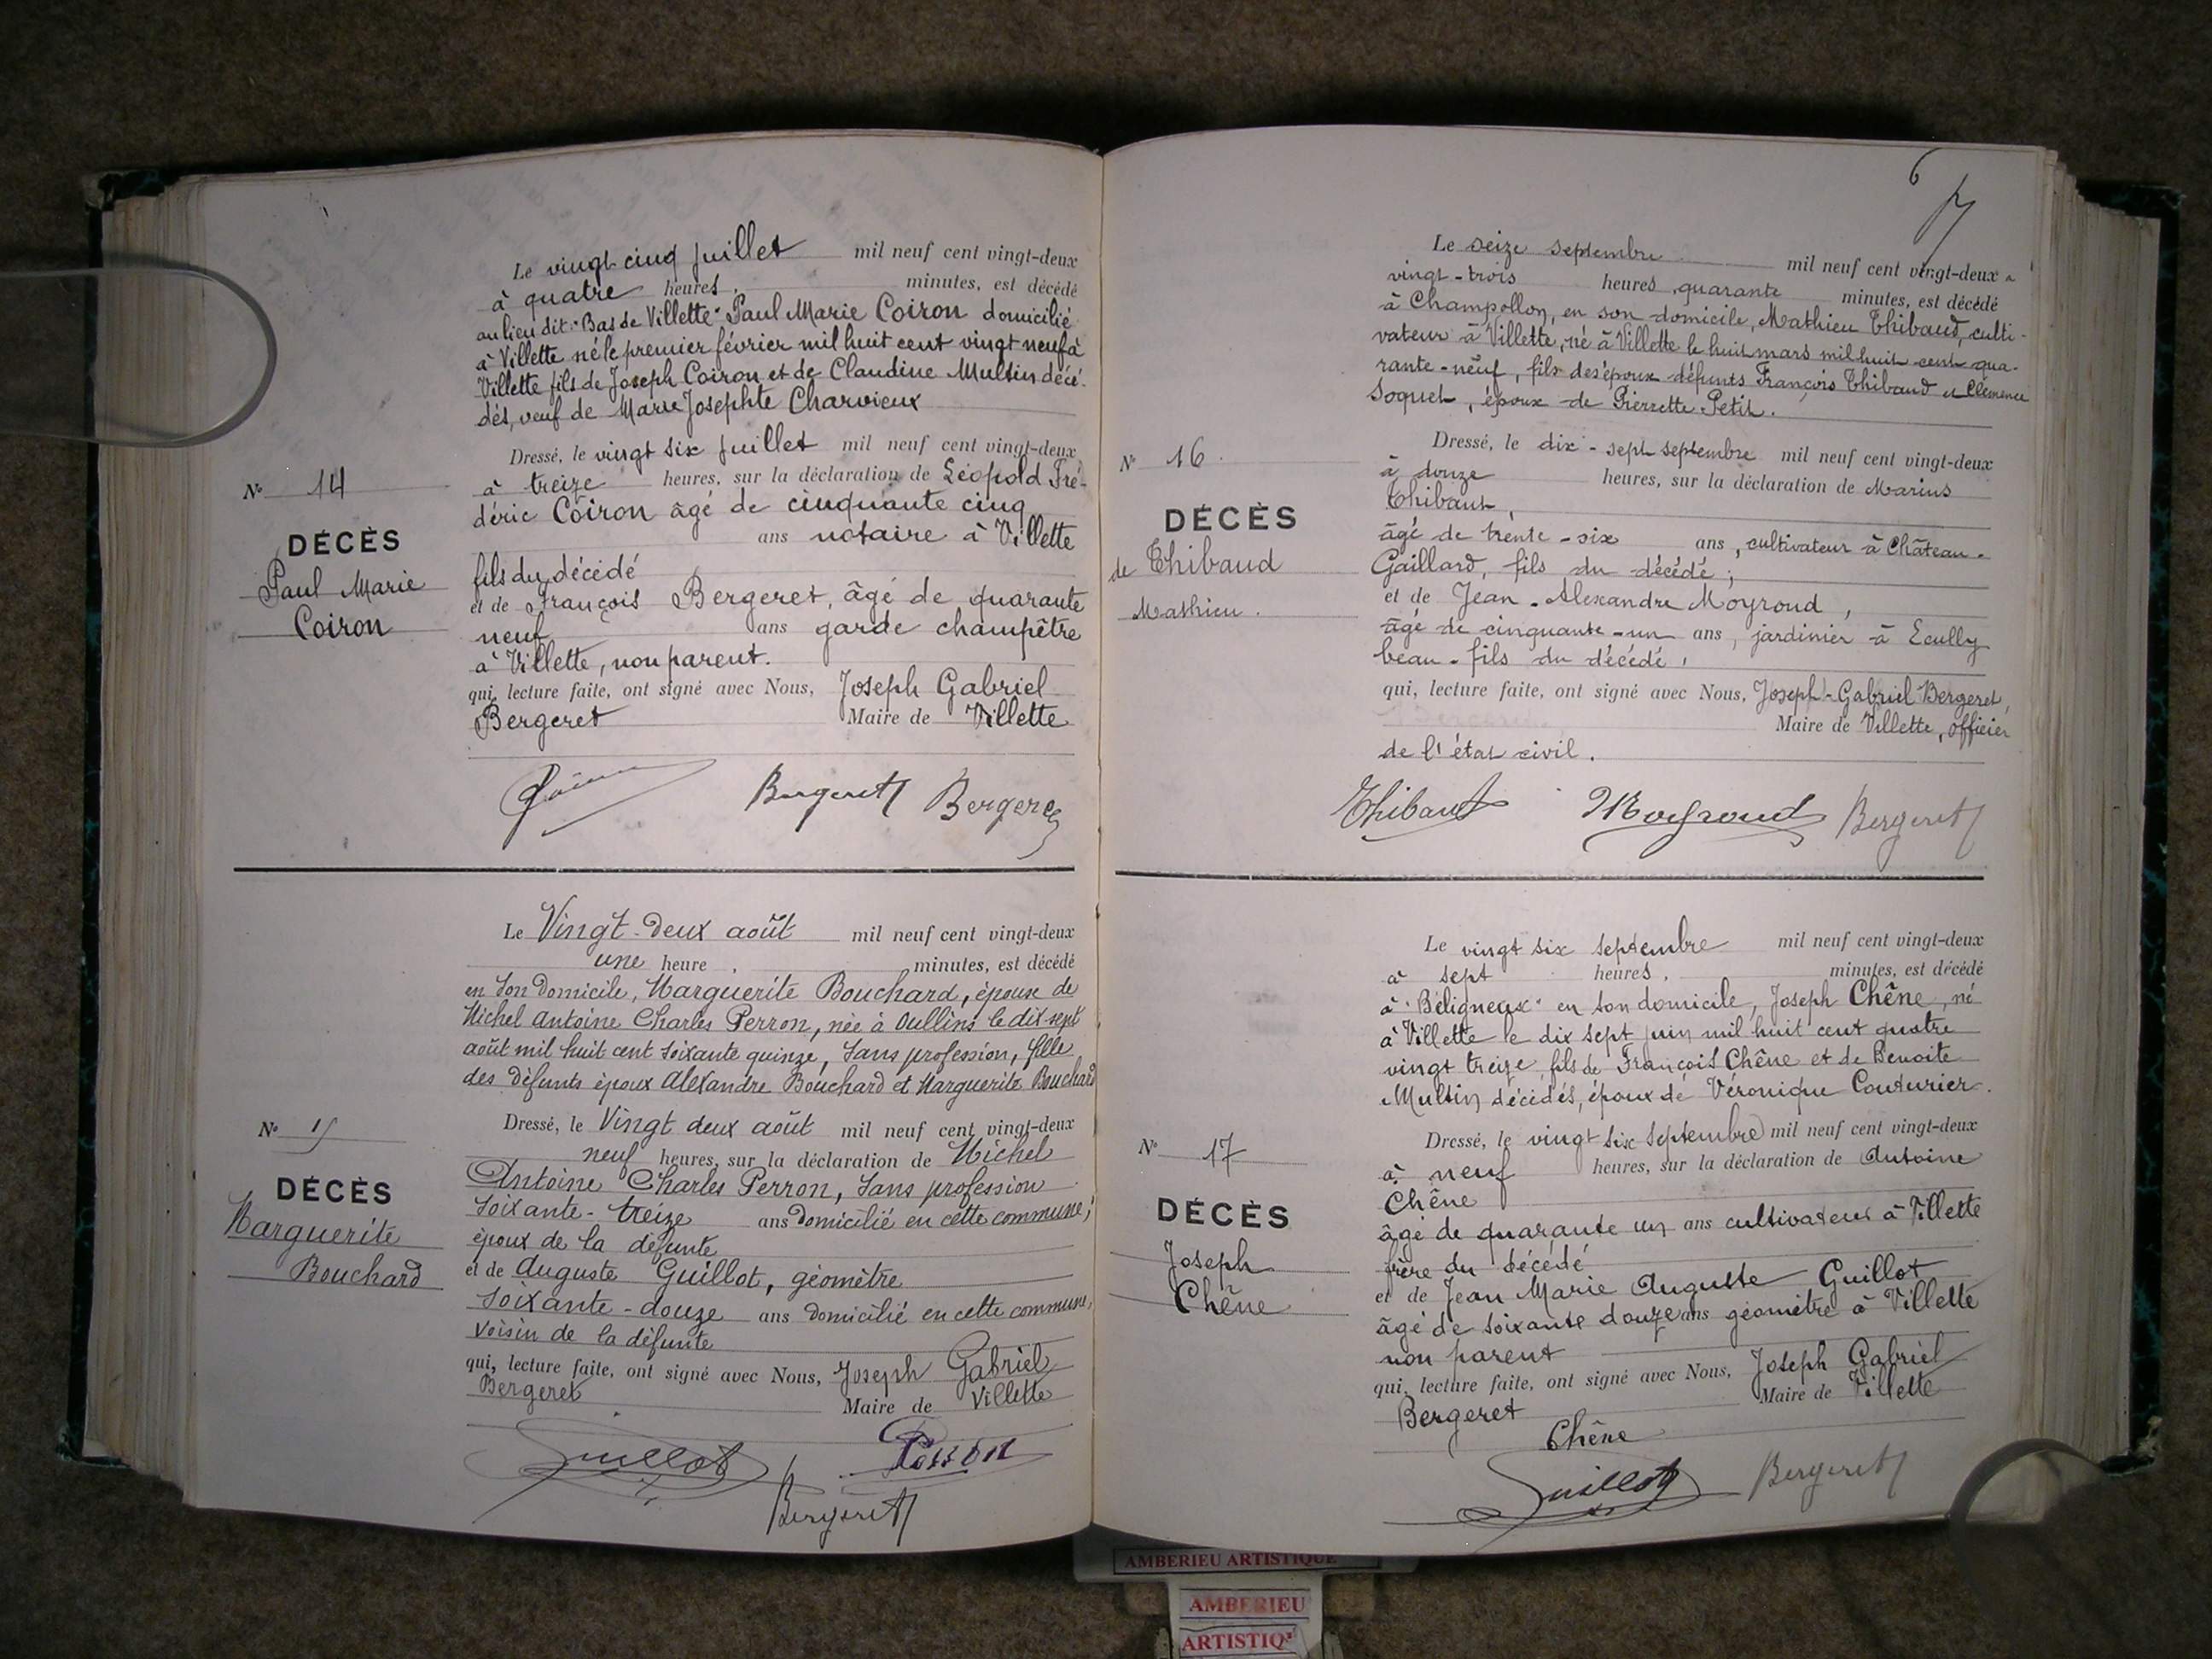 Le vingt cinq juillet mil neuf cent vingt-deux
à quatre heures, minutes, est décédé
au lieu dit "Bas de Villette" Paul Marie Coiron domicilié
à Villette né le premier février mil huit cent vingt neuf à
Villette fils de Joseph Coiron et de Claudine Multin décé-
dés, veuf de Marie Josephte Charvieux
Dressé, le vingt six juillet mil neuf cent vingt-deux
à treize heures, sur la déclaration de Léopold Fré-
déric Coiron âgé de cinquante cinq
ans notaire à Villette
fils du décédé
et de François Bergeret, âgé de quarante
neuf ans garde champêtre
à Villette, non parent.
qui, lecture faite, ont signé avec Nous, Joseph Gabriel
Bergeret Maire de Villette
Bergeret Bergeret
N° 14
DÉCÈS
Paul Marie
Coiron
Le Vingt-deux août mil neuf cent vingt-deux
une heure, minutes, est décédé
en son domicile, Marguerite Bouchard, épouse de
Michel Antoine Charles Perron, née à Oullins le dix-sept
août mil huit cent soixante quinze, sans profession, fille
des défunts époux Alexandre Bouchard et Marguerite Bouchard
Dressé, le Vingt deux août mil neuf cent vingt-deux
neuf heures, sur la déclaration de Michel
Antoine Charles Perron, sans profession
soixante-treize ans domicilié en cette commune,
époux de la défunte
et de Auguste Guillot, géomètre
soixante-douze ans domicilié en cette commune,
voisin de la défunte
qui, lecture faite, ont signé avec Nous, Joseph Gabriel
Bergeret Maire de Villette
Guillot Perron
Bergeret
N° 15
DÉCÈS
Marguerite
Bouchard
6
7
Le seize septembre mil neuf cent vingt-deux à
vingt-trois heures, quarante minutes, est décédé
à Champollon, en son domicile, Mathieu Thibaud, culti-
vateur à Villette, né à Villette le huit mars mil huit cent qua-
rante-neuf, fils des époux défunts François Thibaud et Clémence
Soquet, époux de Pierrette Petit.
Dressé, le dix-sept septembre mil neuf cent vingt-deux
à douze heures, sur la déclaration de Marius
Thibaut,
âgé de trente-six ans, cultivateur à Château-
Gaillard, fils du décédé;
et de Jean-Alexandre Moyroud,
âgé de cinquante-un ans, jardinier à Ecully
beau-fils du décédé,
qui, lecture faite, ont signé avec Nous, Joseph-Gabriel Bergeret,
Maire de Villette, officier
de l'état civil.
Thibaut Moyroud Bergeret
N° 16.
DÉCÈS
de Thibaud
Mathieu.
Le vingt six septembre mil neuf cent vingt-deux
à sept heures, minutes, est décédé
à "Béligneux" en son domicile, Joseph Chêne, né
à Villette le dix sept juin mil huit cent quatre
vingt treize, fils de François Chêne et de Benoite
Multin décédés, époux de Véronique Couturier.
Dressé, le vingt six septembre mil neuf cent vingt-deux
à neuf heures, sur la déclaration de Antoine
Chêne
âgé de quarante un ans cultivateur à Villette
frère du décédé
et de Jean Marie Auguste Guillot
âgé de soixante douze ans géomètre à Villette
non parent
qui, lecture faite, ont signé avec Nous, Joseph Gabriel
Bergeret Maire de Villette
Chêne
Guillot Bergeret
N° 17
DÉCÈS
Joseph
Chêne
AMBERIEU ARTISTIQUE
AMBERIEU
ARTISTIQ